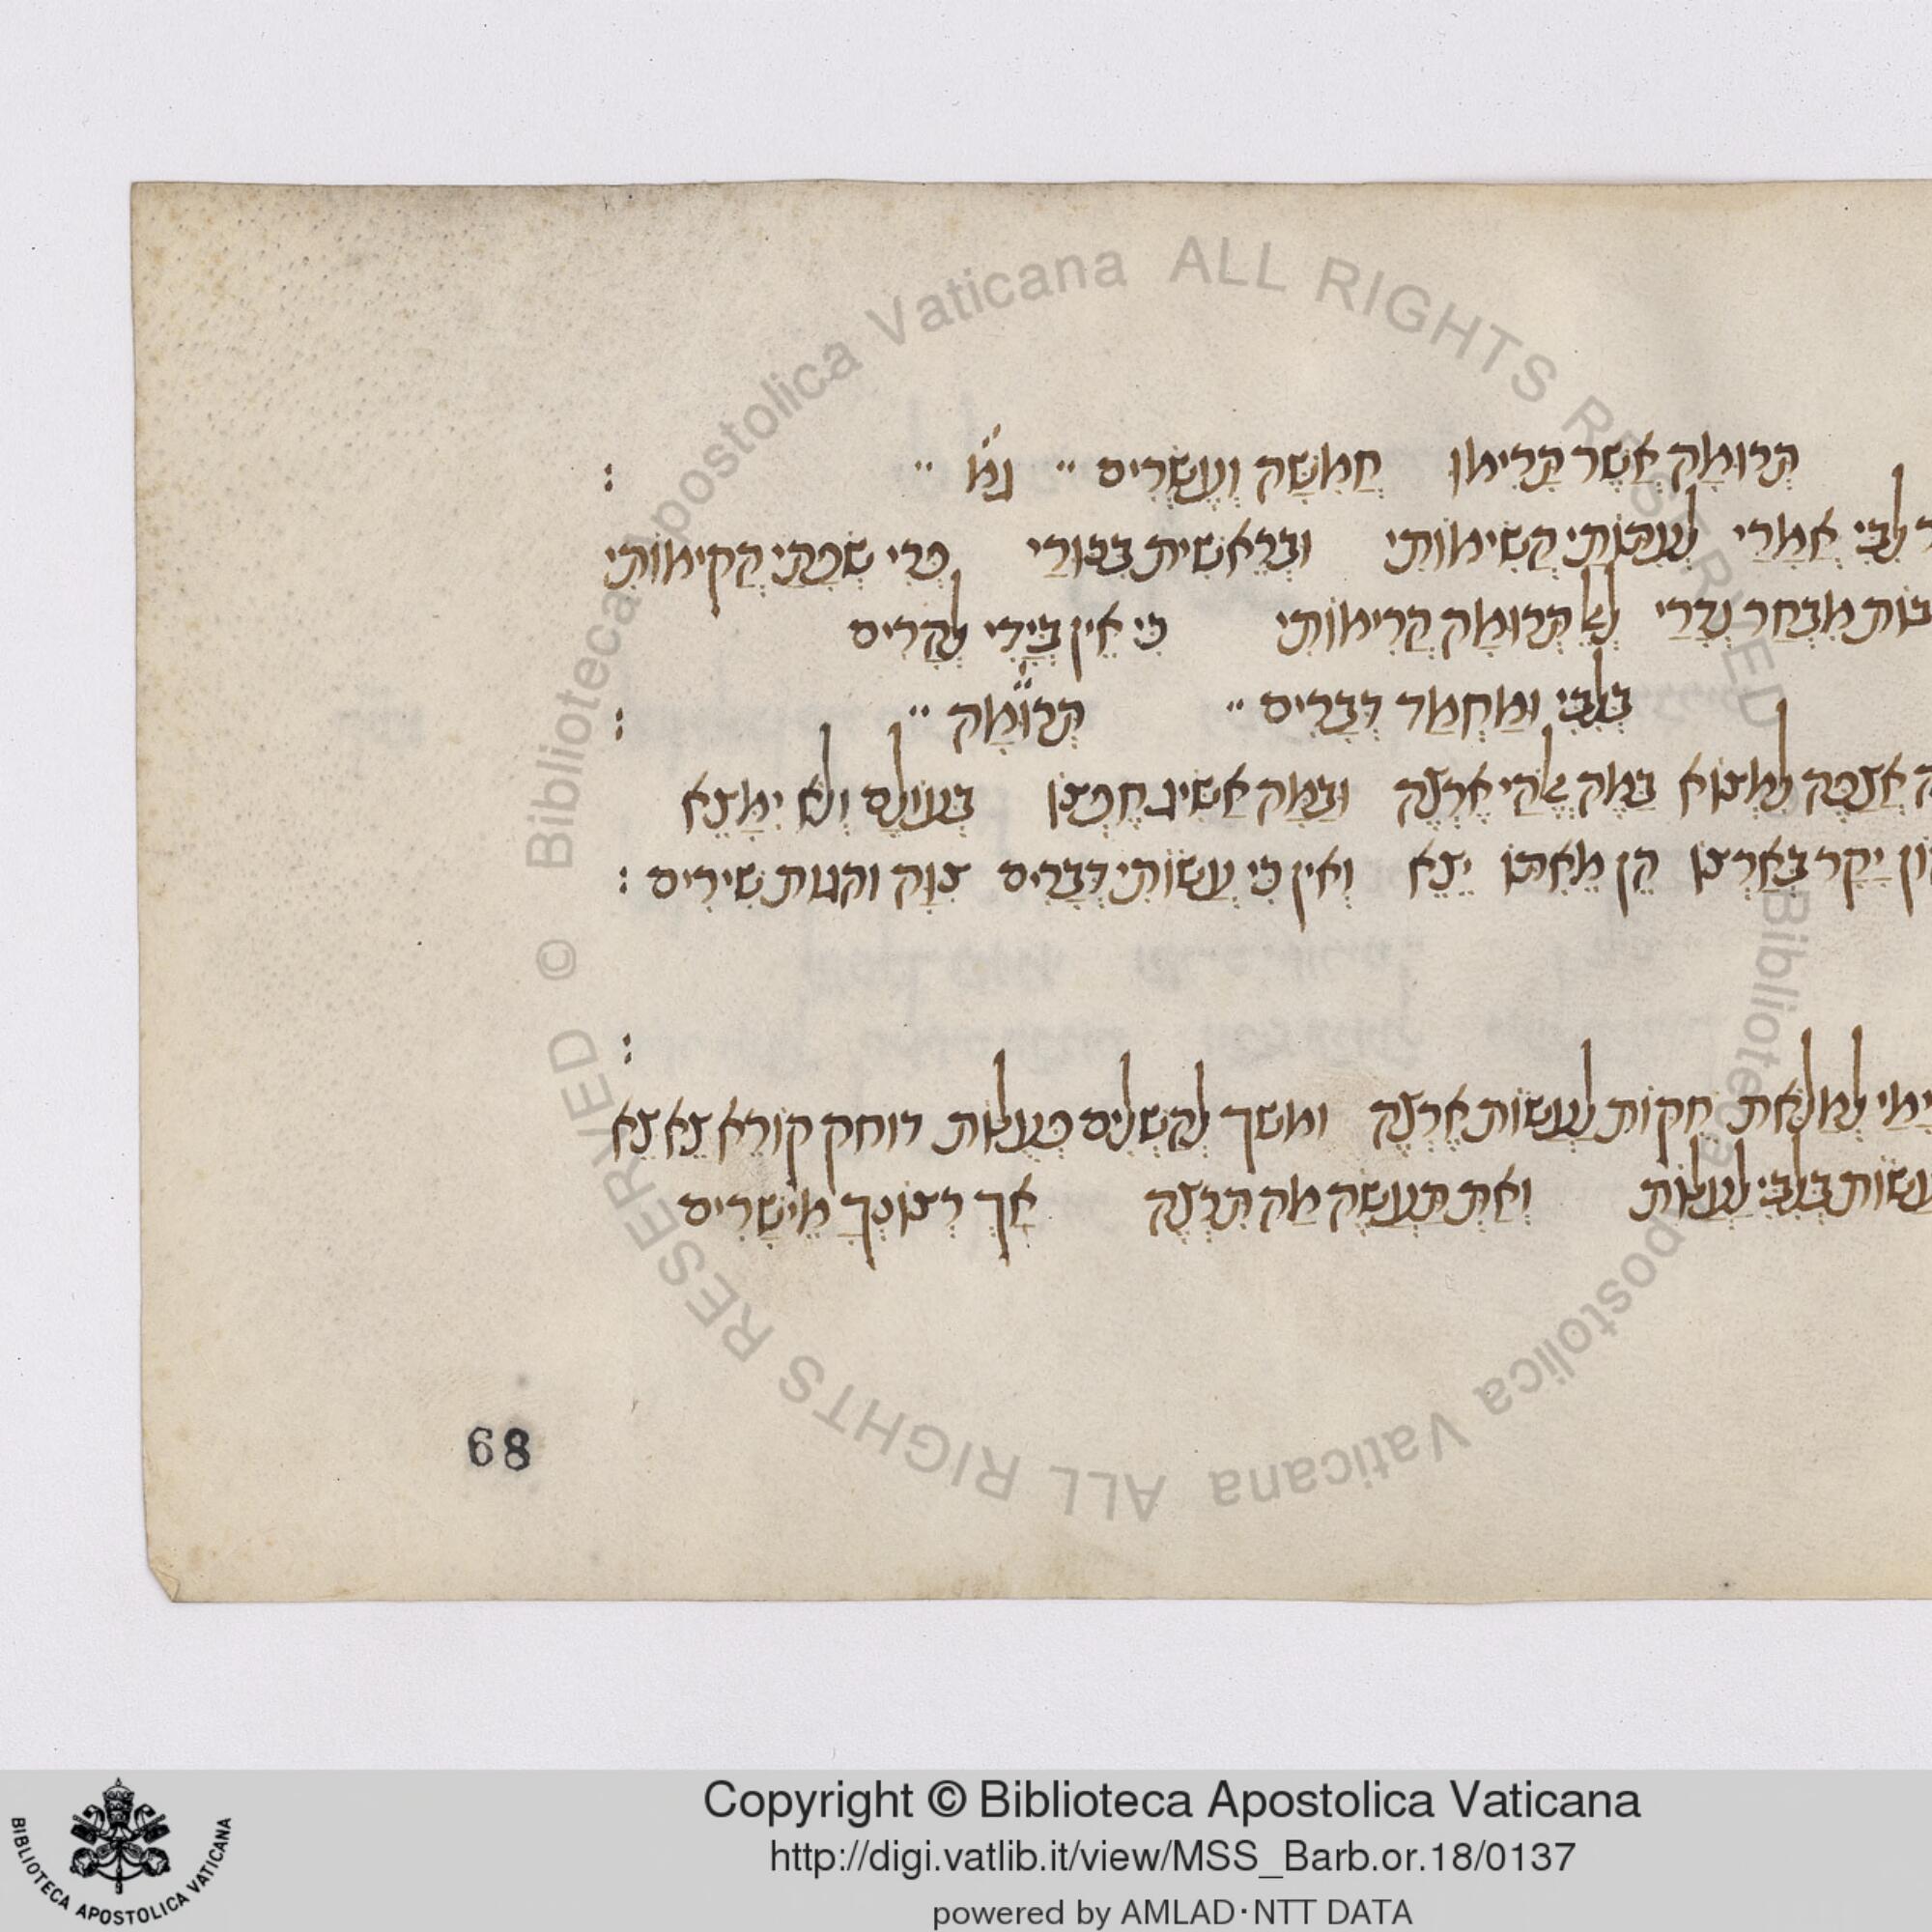 תְּרוּמָה אֲשֶׁר תָּרִימוּ חֲמִשָּׁה וְעֶשְׂרִים ״ נִמֹ ״ :
לִבִּי אֲמָרַי לַעֲבוֹתִי הֲשִׁימוֹתִי וּבְרֵאשִׁית בִּכּוּרַי פְּרִי שְׂפָתַי הֲקִימוֹתִי
מִבְחַר נְדָרַי תְּרוּמָה הֲרִימוֹתִי כִּי אֵין בְּיָדִי לְהָרִים
בְּלִבִּי וּמַחְמַד דְּבָרִים ״ תְּרוּמָה ״ :
אֲצַפֶּה לִמְצוֹא בַּמֶּה אֱלֹהַי אֶרְצֶה וּבַמָּה אַשִּׂיג חֶפְצוֹ בְּעוֹלָם וְלֹא יִמָּצֵא
הוֹן יָקָר בְּאַרְצוֹ הֵן מֵאִתּוֹ יֵצֵא וְאֵין כִּי עֲשׂוֹתִי דְּבָרִים שִׁירִים :
:
יָמַי לְמַלֹּאת חֻקּוֹת לַעֲשׂוֹת אֶרְצֶה ומשך כַּעֲלוֹת דוחה קוֹרֵא צֵא צֵא
עֲשׂוֹת בְּלִבִּי לַעֲלוֹת וְאַתְּ תַּעֲשֶׂה מַה תִּרְצֶה אַךְ רְצוֹנְךָ מֵישָׁרִים
68
Biblioteca Apostolica Vaticana ALL RIGHTS RESERVED ©
Biblioteca Apostolica Vaticana ALL RIGHTS RESERVED
BIBLIOTECA APOSTOLICA VATICANA
Copyright © Biblioteca Apostolica Vaticana
http://digi.vatlib.it/view/MSS_Barb.or.18/0137
powered by AMLAD·NTT DATA